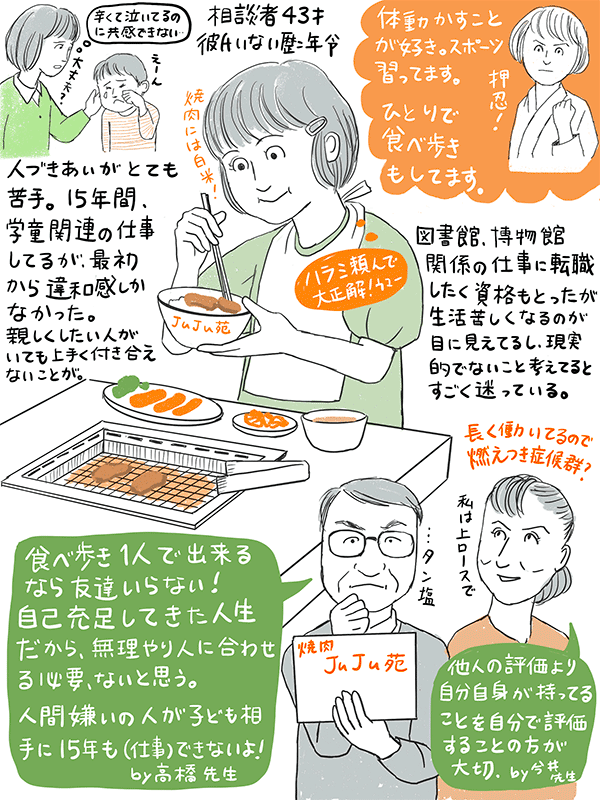 辛くて泣いてるの
に共感できない…
大丈夫?
えーん
相談者43才
彼氏いない歴=年令
体動かすこと
が好き。スポーツ
習ってます。
ひとりで
食べ歩き
もしてます。
押忍!
焼肉には白米!
人づきあいがとても
苦手。15年間、
学童関連の仕事
してるが、最初
から違和感しか
なかった。
親しくしたい人が
いても上手く付き合え
ないことが。
ハラミ頼んで
大正解!ウマー
JuJu苑
図書館、博物館
関係の仕事に転職
したく資格もとったが
生活苦しくなるのが
目に見えてるし、現実
的でないこと考えてると
すごく迷っている。
長く働いてるので
燃えつき症候群?
私は上ロースで
…タン塩
焼肉
JuJu苑
食べ歩き1人で出来る
なら友達いらない!
自己充足してきた人生
だから、無理やり人に合わせ
る必要、ないと思う。
人間嫌いの人が子ども相
手に15年も(仕事)できないよ!
by高橋先生
他人の評価より
自分自身が持ってる
ことを自分で評価
することの方が
大切、by今井先生